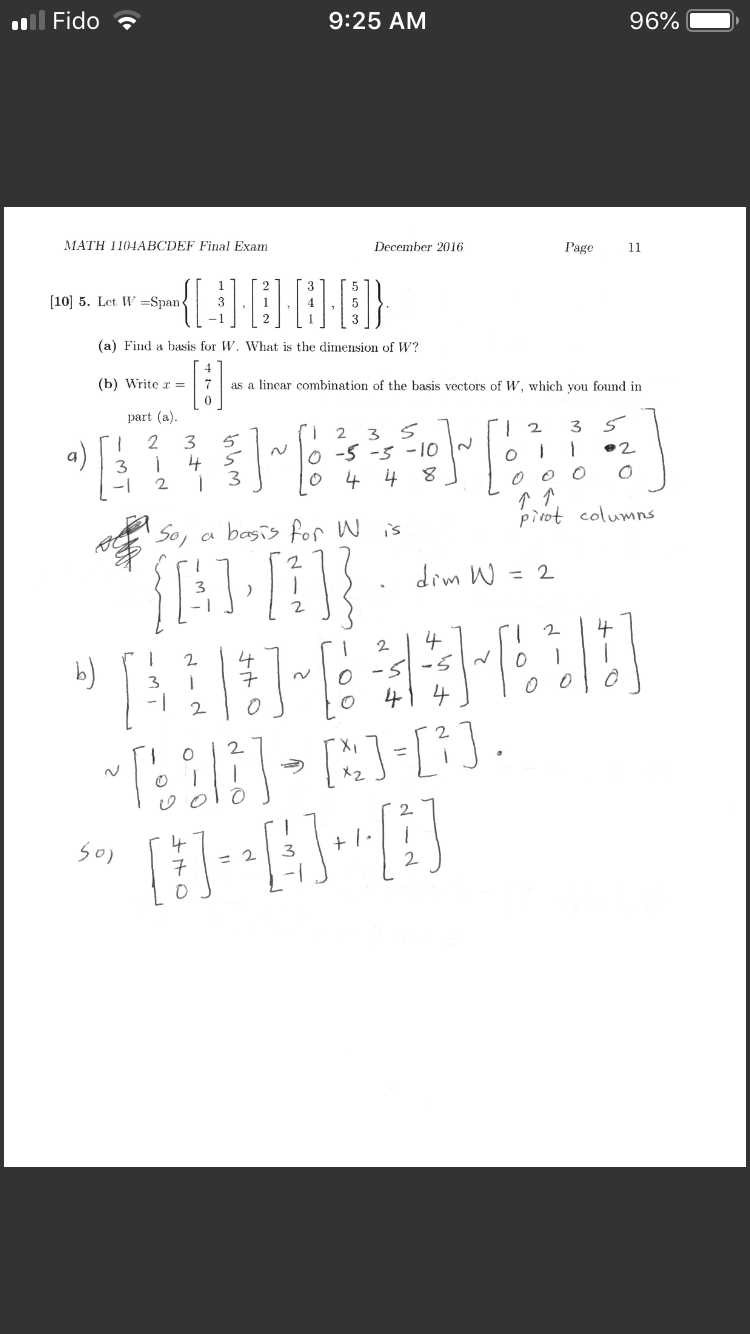 Fido 9:25 AM 96%
MATH 1104ABCDEF Final Exam December 2016 Page 11
[10] 5. Let W =Span{[1 3 −1], [2 1 2], [3 4 1], [5 5 3]}.
(a) Find a basis for W. What is the dimension of W?
(b) Write x = [4 7 0] as a linear combination of the basis vectors of W, which you found in
part (a).
a) [1 2 3 5; 3 1 4 5; -1 2 1 3] ~ [1 2 3 5; 0 -5 -5 -10; 0 4 4 8] ~ [1 2 3 5; 0 1 1 2; 0 0 0 0]
↑ ↑
pivot columns
So, a basis for W is
{[1 3 -1], [2 1 2]}. dim W = 2
b) [1 2 | 4; 3 1 | 7; -1 2 | 0] ~ [1 2 | 4; 0 -5 | -5; 0 4 | 4] ~ [1 2 | 4; 0 1 | 1; 0 0 | 0]
~ [1 0 | 2; 0 1 | 1; 0 0 | 0] ⇒ [x₁ x₂] = [2 1].
So, [4 7 0] = 2 [1 3 -1] + 1· [2 1 2]